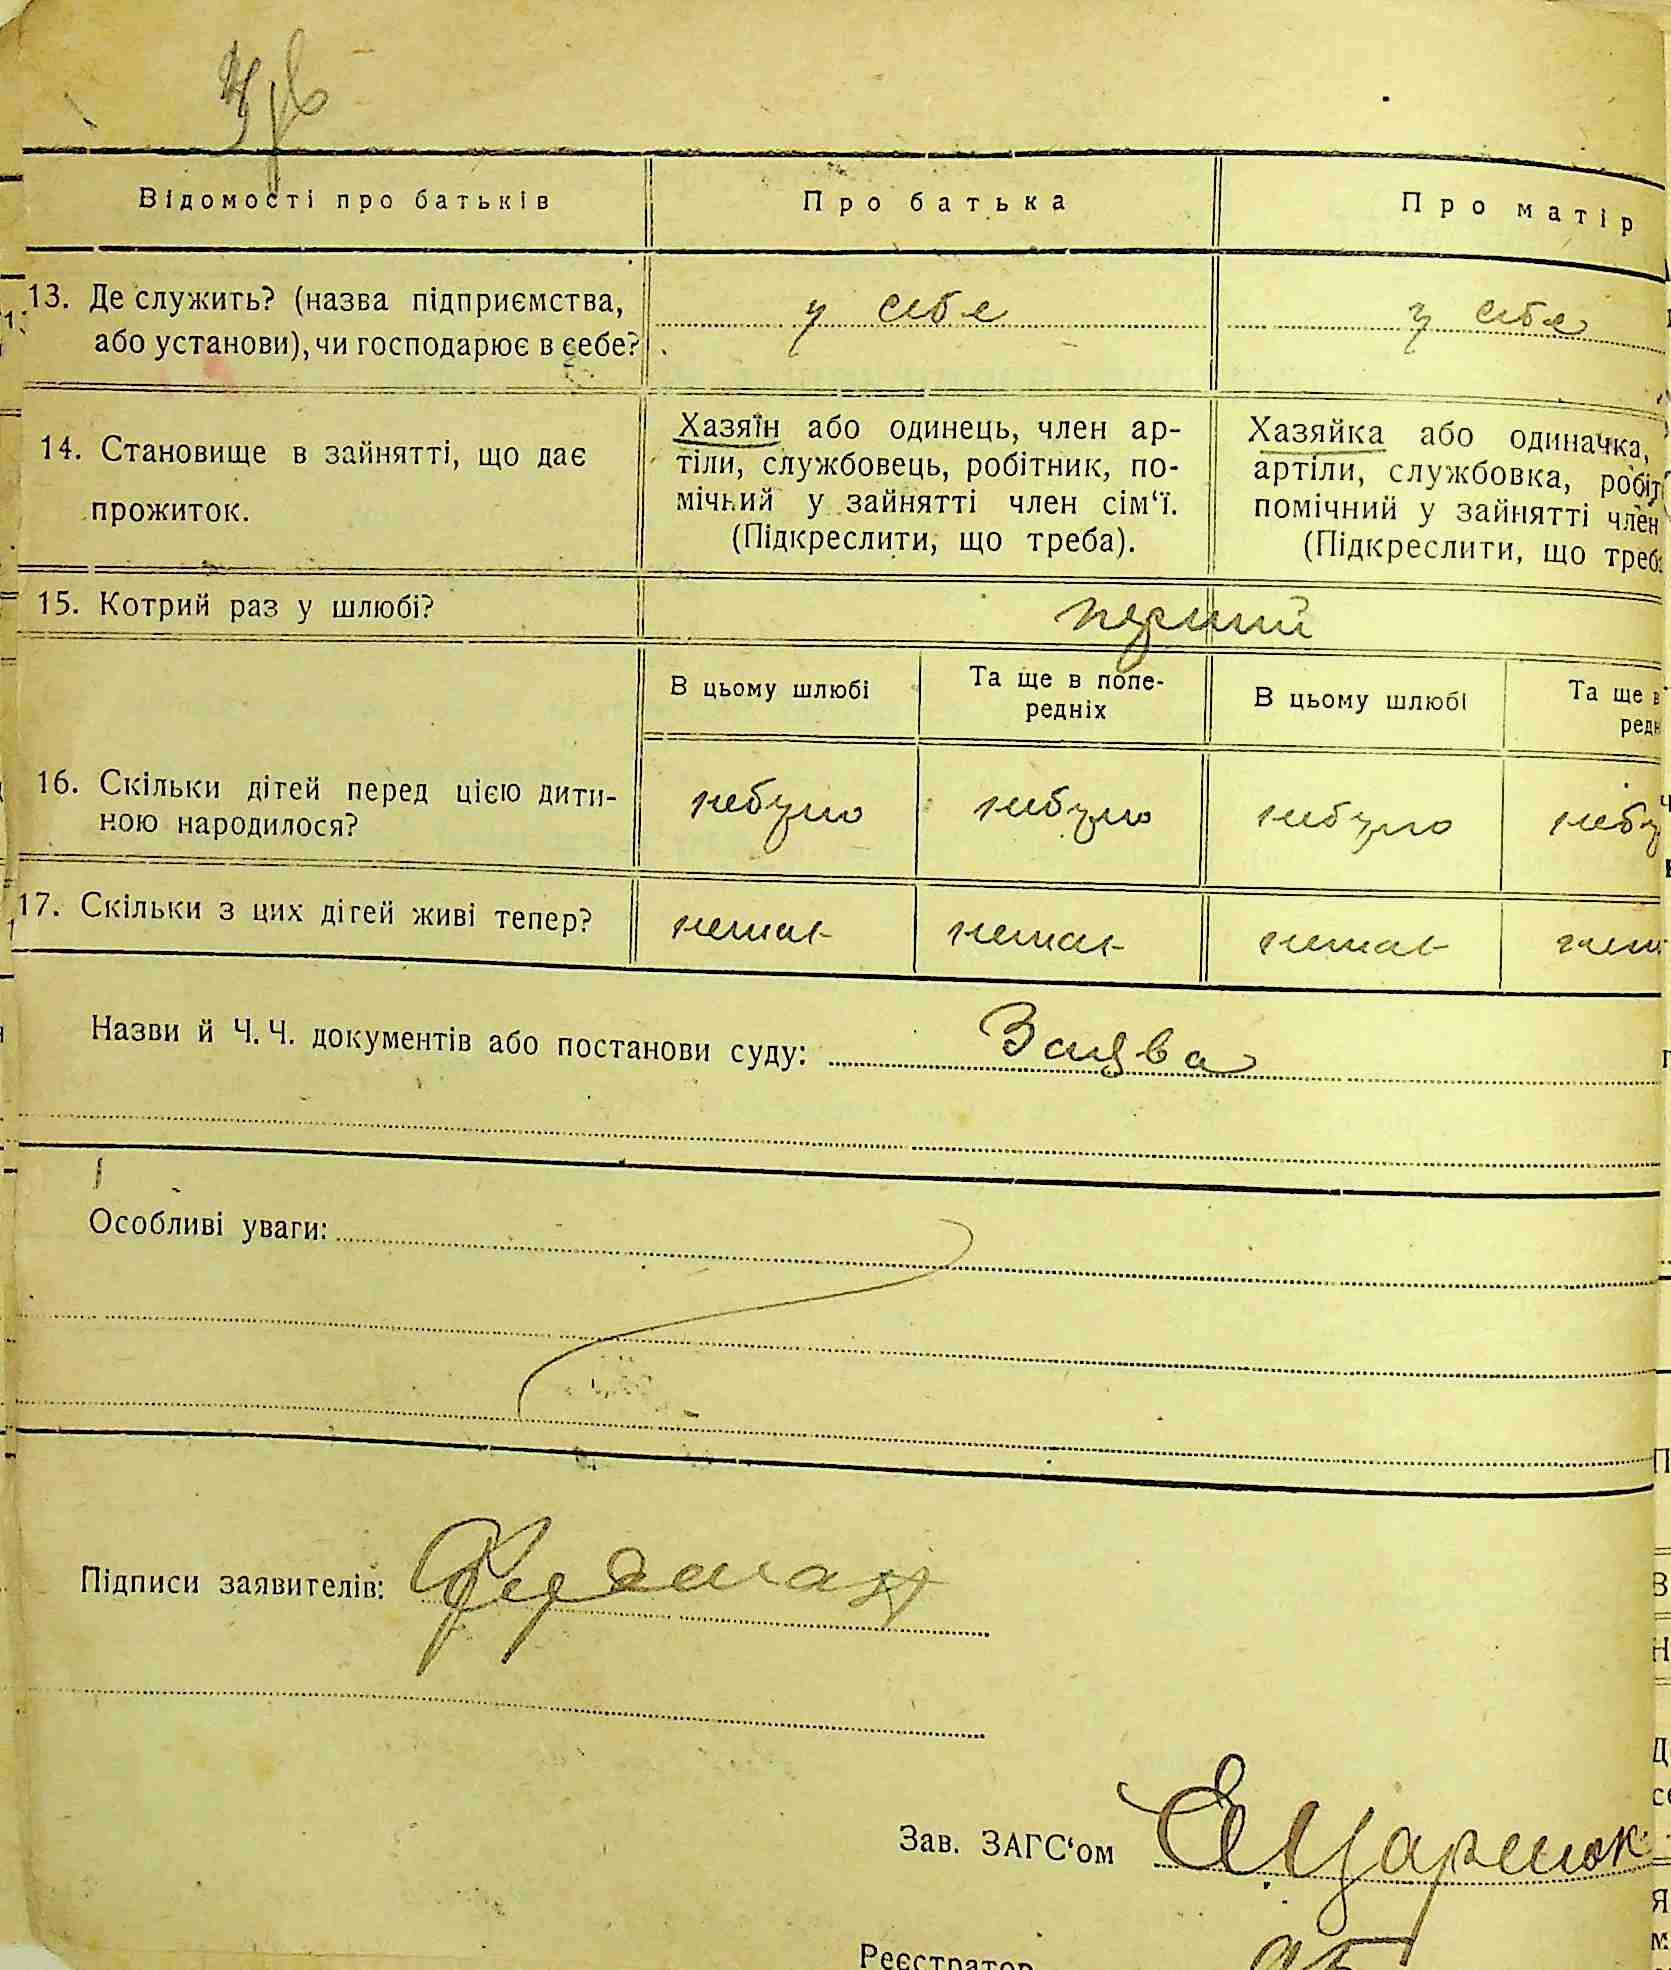 Відомості про батьків Про батька Про матір
13. Де служить? (назва підприємства, у себе у себе
або установи), чи господарює в себе?
14. Становище в зайнятті, що дає
прожиток.
Хазяїн або одинець, член ар-
тіли, службовець, робітник, по-
мічний у зайнятті член сім‘ї.
(Підкреслити, що треба).
Хазяйка або одиначка,
артіли, службовка, робіт
помічний у зайнятті член
(Підкреслити, що треб
15. Котрий раз у шлюбі? перший
В цьому шлюбі Та ще в попе-
редніх
В цьому шлюбі Та ще в
редн
16. Скільки дітей перед цією дити-
ною народилося?
небуло небуло небуло небу
17. Скільки з цих дітей живі тепер? немає немає немає нем
Назви й Ч. Ч. документів або постанови суду: Заява
Особливі уваги:
Підписи заявителів:
Зав. ЗАГС‘ом
Реєстратор